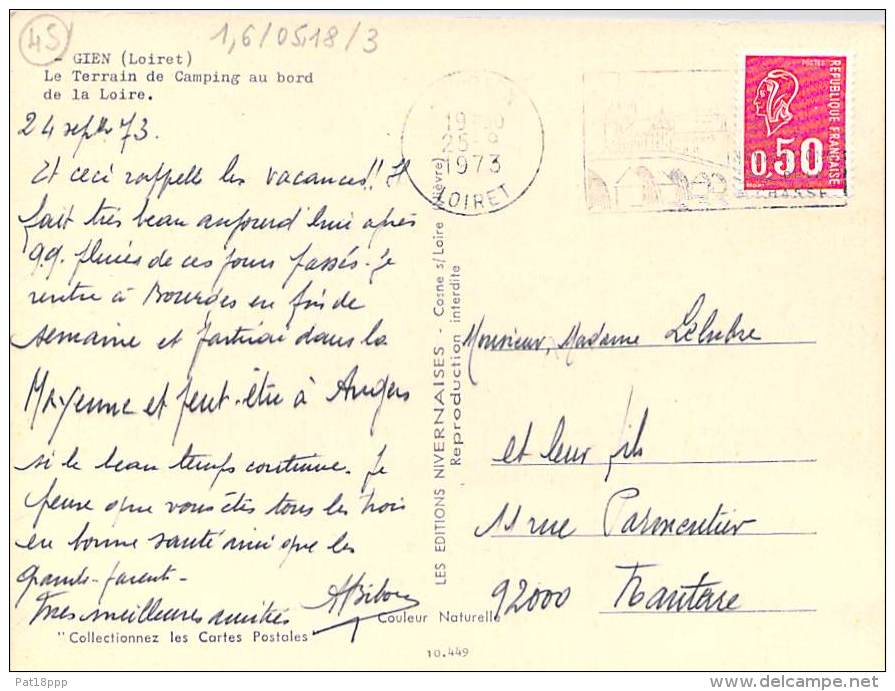 45
1,6/05.18/3
- GIEN (Loiret)
Le Terrain de Camping au bord
de la Loire.
24 sept 73.
Et ceci rappelle les vacances!! Il
fait très beau aujourd'hui après
q.q. pluies de ces jours passés. Je
rentre à Bourges en fin de
semaine et partirai dans la
Mayenne et peut-être à Angers
si le beau temps continue. Je
pense que vous êtes tous les trois
en bonne santé ainsi que les
grands-parents -
Mes meilleures amitiés
"Collectionnez les Cartes Postales"
LES EDITIONS NIVERNAISES - Cosne s/Loire (Nièvre)
Reproduction interdite
Couleur Naturelle
10.449
25-9
1973
LOIRET
POSTES
REPUBLIQUE FRANÇAISE
0,50
CHASSE
Monsieur, Madame Lelubre
et leur fils
11 rue Parmentier
92000 Nanterre
Pat18ppp
delcampe.net